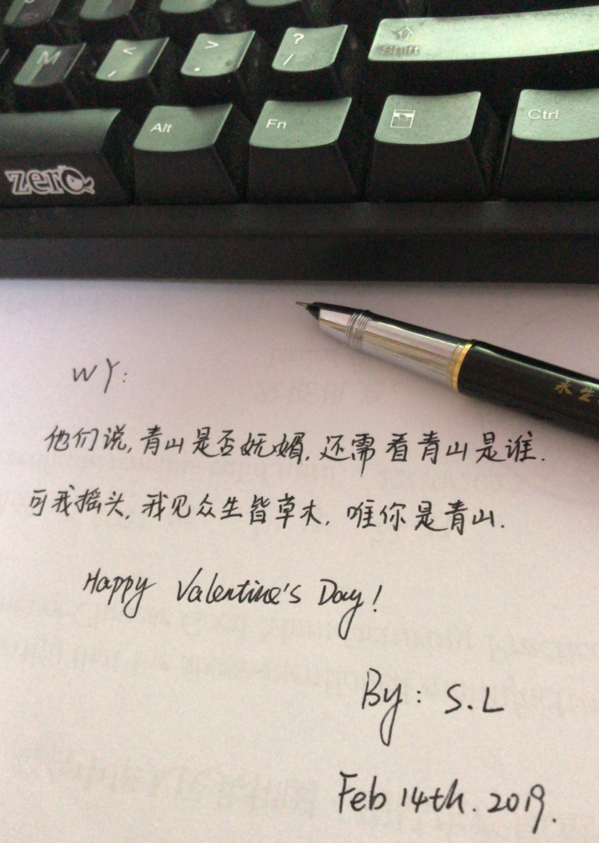 M
<
,
>
.
?
/
Shift
Alt
Fn
Ctrl
zero
永生
WY:
他们说,青山是否妩媚,还需看青山是谁.
可我摇头,我见众生皆草木,唯你是青山.
Happy Valentine's Day!
By: S.L
Feb 14th. 2019.